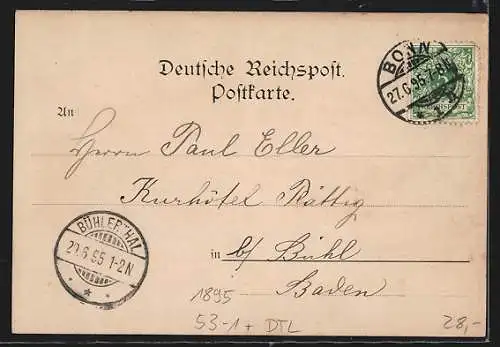 Deutsche Reichspost.
Postkarte.
BONN
27.6.95 7-8N
REICHSPOST
An
Herrn Paul Eller
Kurhôtel Rättig
in b/ Bühl
Baden
BÜHLERTHAL
29.6.95 1-2N
1895
53-1 + DTL
28,-